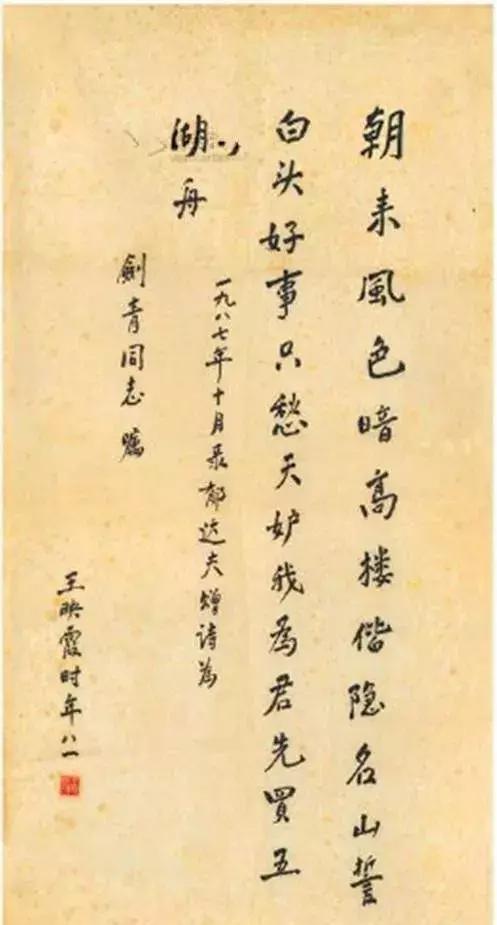 朝来風色暗高楼偕隐名山誓
白头好事只愁天妒我為君先買五
湖舟
一九八七年十月录郁达夫赠诗為
劍青同志嘱
王映霞时年八一